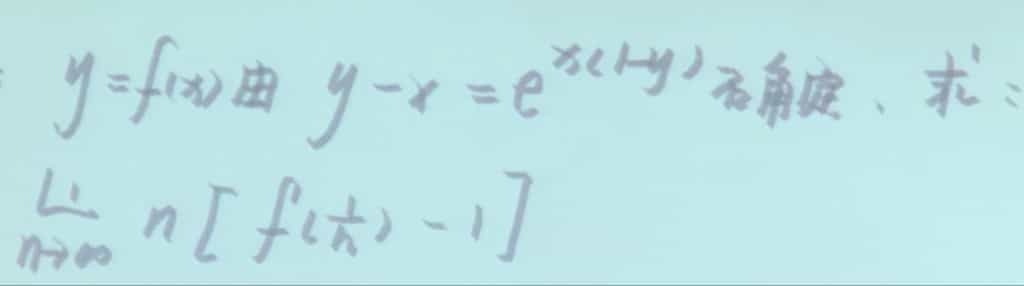 y=f(x)由 y-x=e^{x(1-y)}确定、求:
lim_{n→∞} n[f(1/n)-1]